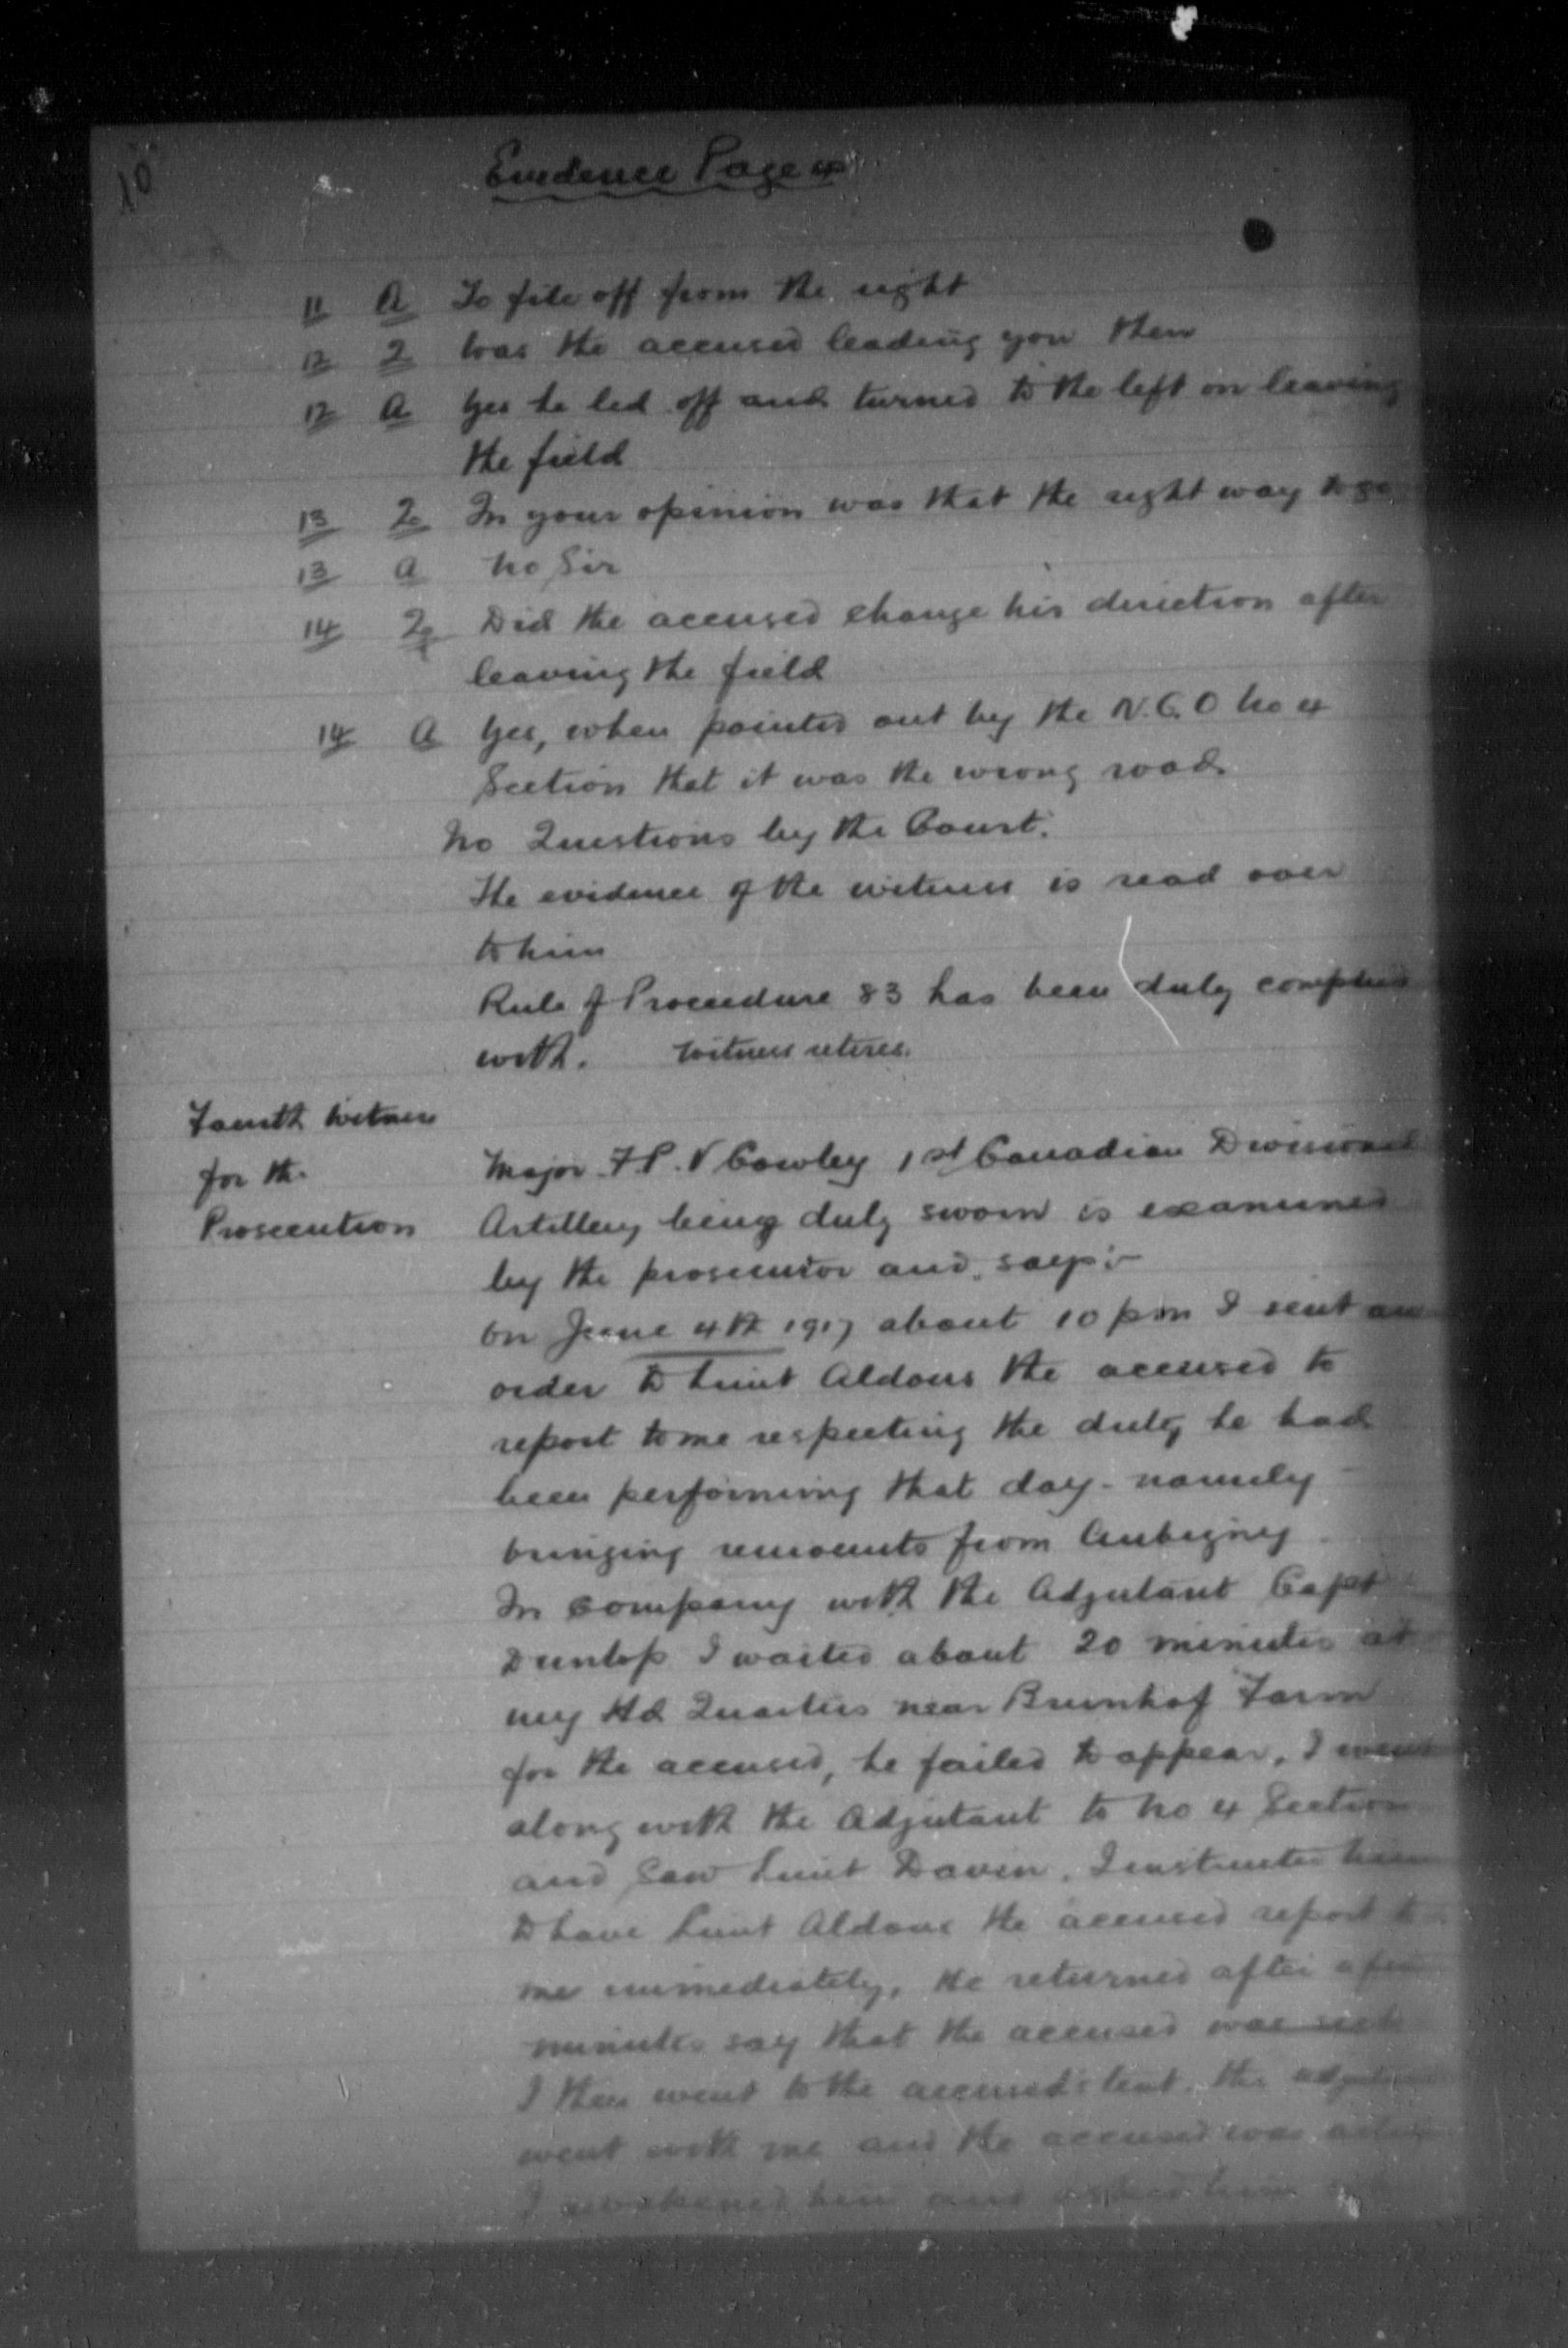 10
Evidence Page 4
11 A To file off from the right
12 Q Was the accused leading you then
12 A Yes he led off and turned to the left on leaving
the field
13 Q In your opinion was that the right way to go
13 A No Sir
14 Q Did the accused change his direction after
leaving the field
14 A Yes, when pointed out by the N.C.O No 4
Section that it was the wrong road
No Questions by the Court.
The evidence of the witness is read over
to him
Rule of Procedure 83 has been duly complied
with. Witness retires.
Fourth Witness
for the
Prosecution
Major F.P.V Cowley 1st Canadian Divisional
Artillery being duly sworn is examined
by the prosecutor and says:-
On June 4th 1917 about 10 pm I sent an
order to Lieut Aldous the accused to
report to me respecting the duty he had
been performing that day - namely
bringing remounts from Aubigny
In company with the Adjutant Capt
Dunlop I waited about 20 minutes at
my Hd Quarters near Brunhof Farm
for the accused, he failed to appear, I went
along with the Adjutant to No 4 Section
and saw Lieut Davin. I instructed him
to have Lieut Aldous the accused report to
me immediately, He returned after a few
minutes say that the accused was
I then went to the accused's tent. the adjutant
went with me and the accused was
I awakened him and asked him